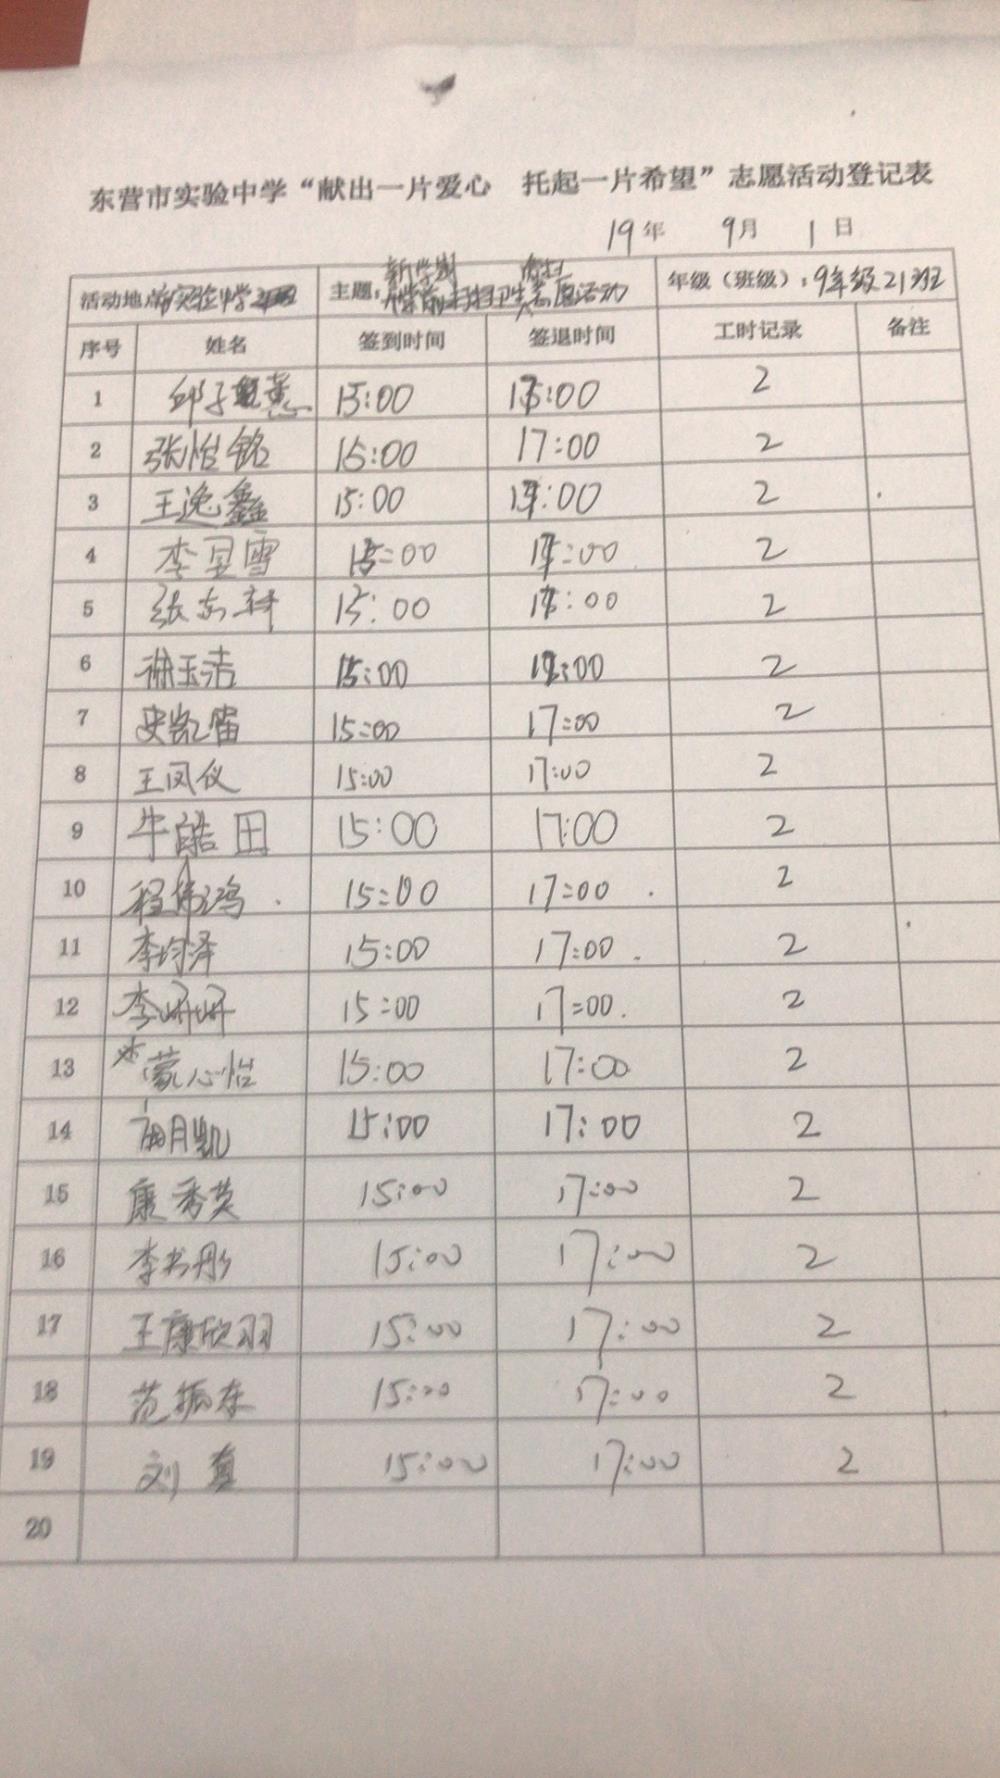 东营市实验中学“献出一片爱心 托起一片希望”志愿活动登记表
19年 9月 1日
新学期
活动地点:实验中学 主题: 卫生志愿活动 年级（班级）:9年级21班
序号 姓名 签到时间 签退时间 工时记录 备注
1 邱子 15:00 17:00 2
2 张怡铭 15:00 17:00 2
3 王逸鑫 15:00 17:00 2
4 李昱雪 15:00 17:00 2
5 张东 15:00 17:00 2
6 谢玉洁 15:00 17:00 2
7 史凯雷 15:00 17:00 2
8 王凤仪 15:00 17:00 2
9 牛皓田 15:00 17:00 2
10 程鸿 15:00 17:00 2
11 李均泽 15:00 17:00 2
12 李妍妍 15:00 17:00 2
13 蒙心怡 15:00 17:00 2
14 胡月凯 15:00 17:00 2
15 康秀英 15:00 17:00 2
16 李书彤 15:00 17:00 2
17 王康欣羽 15:00 17:00 2
18 范振东 15:00 17:00 2
19 刘真 15:00 17:00 2
20